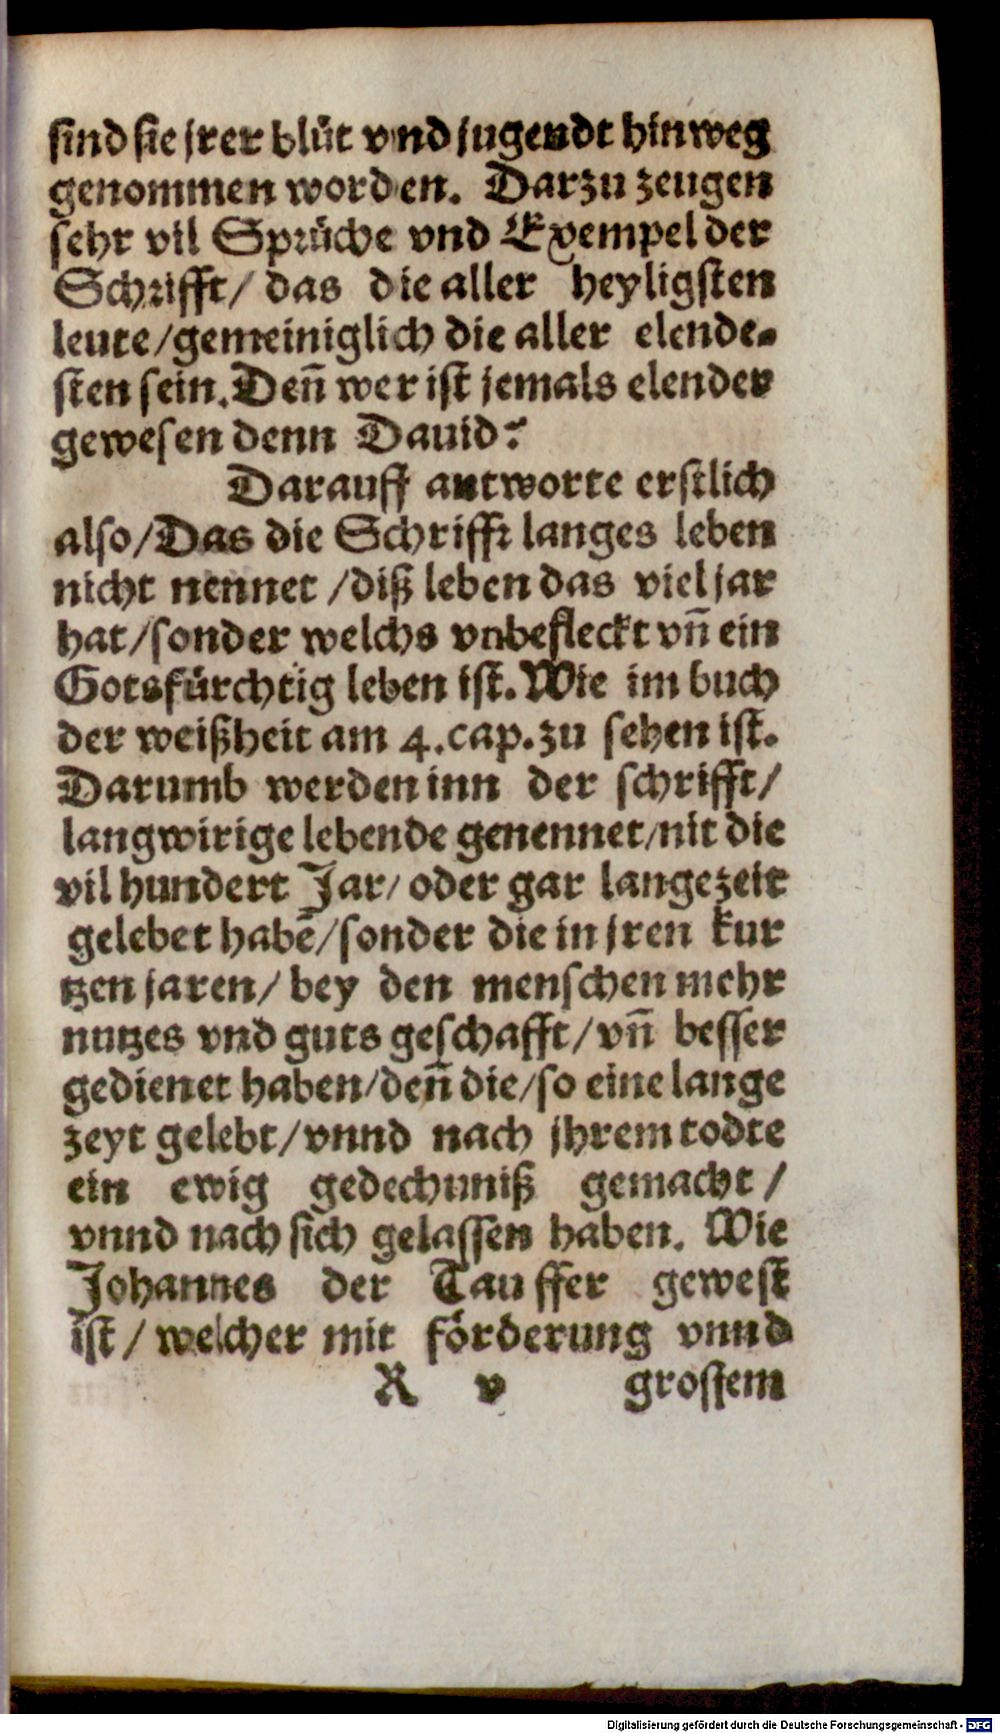 sind sie jrer blüt vnd jugendt hinweg
genommen worden. Darzu zeugen
sehr vil Sprüche vnd Exempel der
Schrifft/ das die aller heyligsten
leute/gemeiniglich die aller elende-
sten sein. Deñ wer ist jemals elender
gewesen denn Dauid?
Darauff antworte erstlich
also/Das die Schrifft langes leben
nicht nennet /diß leben das viel jar
hat/sonder welchs vnbefleckt vñ ein
Gotsfürchtig leben ist. Wie im buch
der weißheit am 4.cap.zu sehen ist.
Darumb werden inn der schrifft/
langwirige lebende genennet/nit die
vil hundert Jar/ oder gar lange zeit
gelebet habẽ/sonder die in jren kur
tzen jaren/ bey den menschen mehr
nutzes vnd guts geschafft/ vñ besser
gedienet haben/deñ die/so eine lange
zeyt gelebt/vnnd nach jhrem todte
ein ewig gedechtniß gemacht/
vnnd nach sich gelassen haben. Wie
Johannes der Tauffer gewest
ist/ welcher mit förderung vnnd
R v grossem
Digitalisierung gefördert durch die Deutsche Forschungsgemeinschaft - DFG